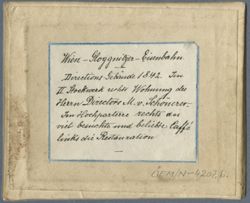 Wien – Gloggnitzer – Eisenbahn.
Directions Gebäude 1842. Im
II. Stockwerk rechts Wohnung des
Herrn Directors M. v. Schönerer.
Im Hochparterre rechts das
viel besuchte und beliebte Caffé
links die Restauration